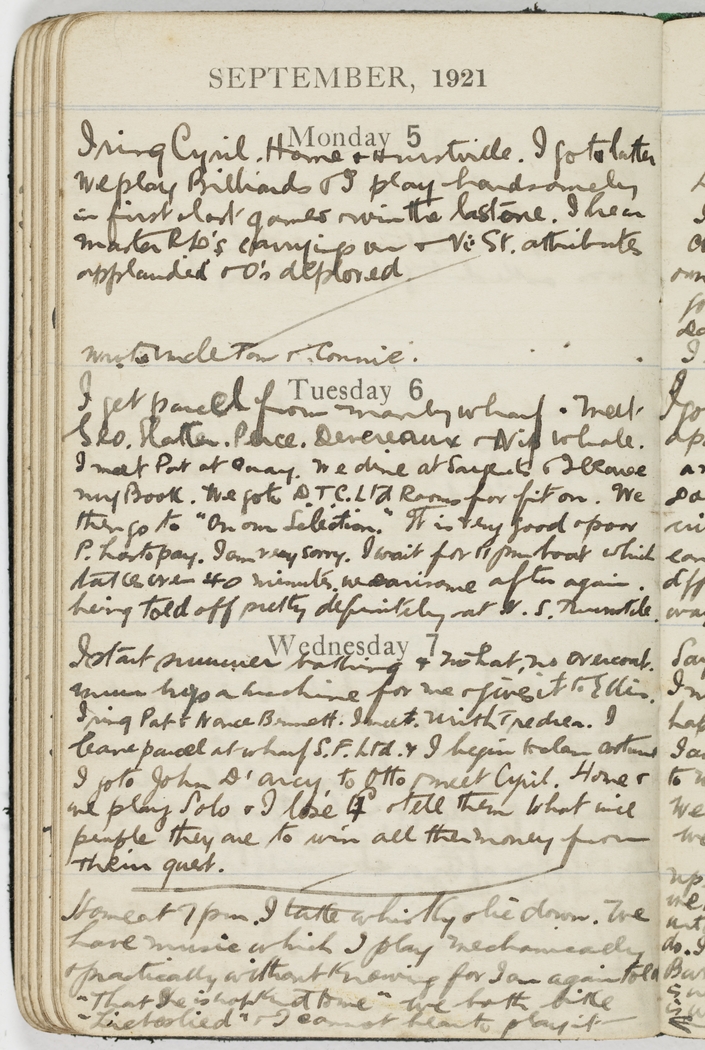 SEPTEMBER, 1921
Monday 5
I ring Cyril. Home & Hurstville. I go to latter
we play Billiards & I play handsomely
in first & last games & win the last one. I hear
carrying on & St. attributes
applauded & O's deplored.
wrote Uncle Tom & Connie.
Tuesday 6
I get parcel from Manly wharf. Meet
Geo. Slatter. Peice. Devereaux & whale.
I meet Pat at Quay. We dine at Sargents & I leave
my Book. We go to D.T.C. Ltd Rooms for fit on. We
then go to "On our Selection." It is very good & poor
P. has to pay. I am very sorry. I wait for 11 pm boat which
takes over 40 minutes. wearisome after again
being told off pretty definitely at N. S. Turnstile.
Wednesday 7
I start summer bathing & no hat, no overcoat.
mum buys a machine for me & gives it to Ellis.
I ring Pat & Nance Bennett. I meet. I
leave parcel at wharf S.F. Ltd. & I begin to clean costume
I go to John D'arcy, to Otto & meet Cyril. Home &
we play Solo & I lose & tell them what nice
people they are to win all the money from
their guest.
Home at 7 pm. I take whisky & lie down. We
have music which I play mechanically
& practically without knowing for I am again told
"That He is not kind to me" we both like
"Liebeslied" & I cannot bear to play it